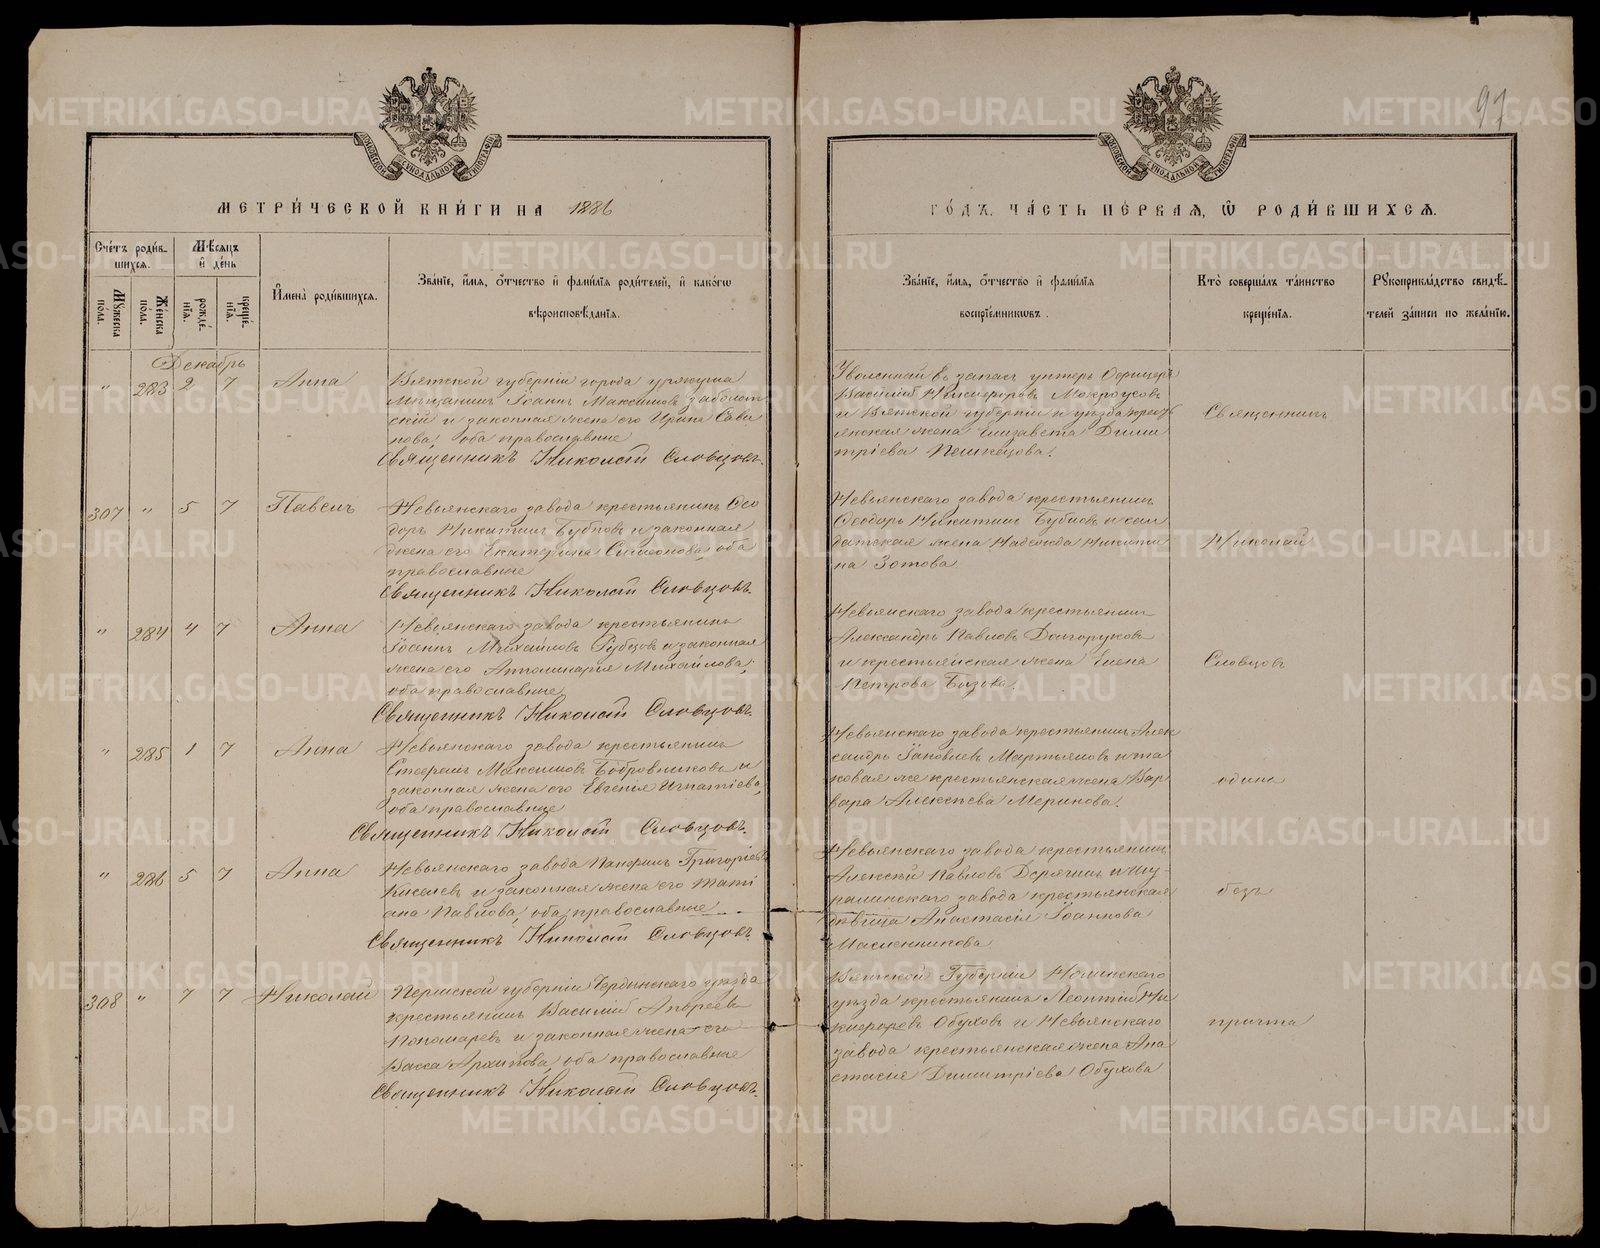 97
МЕТРИ́ЧЕСКОЙ КНИ́ГИ НА 1886
ГО́ДЪ, ЧА́СТЬ ПЕ́РВАЯ, Ѿ РОДИ́ВШИХСЯ.
Сче́тъ роди́в-
шихся.
Му́жеска по́ла.
Же́нска по́ла.
Мѣ́сяцъ
и҆ де́нь
рожде́-
нїѧ.
креще́-
нїѧ.
И҆мена̀ роди́вшихся.
Зва́нїе, и҆́мя, о҆́тчество и҆ фами́лїя роди́телей, и҆ како́гѡ
вѣроисповѣ́данїя.
Зва́нїе, и҆́мя, о҆́тчество и҆ фами́лїя
воспрїе́мникѡвъ.
Кто̀ соверша́лъ та́инство
креще́нїя.
Рꙋкоприкла́дство свидѣ́-
телей за́писи по жела́нїю.
Декабрь
" 283 2 7 Анна
Вятской губерніи города уржума
Мѣщанинъ Іоаннъ Максимовъ Заболот
скій и законная жена его Ирина Сави
нова, оба православные
Священникъ Николай Словцовъ.
Уволенный въ запасъ унтеръ Офицеръ
Василій Никифоровъ Мокроусовъ
и Вятской губерніи и уѣзда крест
янская жена Елизавета Дими
тріева Пешнецова.
Священникъ
307 " 5 7 Павелъ
Невьянскаго завода крестьянинъ Ѳео
доръ Никитинъ Бубновъ и законная
жена его Екатерина Симеонова, оба
православные
Священникъ Николай Словцовъ.
Невьянскаго завода крестьянинъ
Ѳеодоръ Никитинъ Бубновъ и сол
датская жена Надежда Никити
на Зотова.
Николай
" 284 4 7 Анна
Невьянскаго завода крестьянинъ
Іоаннъ Михайловъ Рубцовъ и законная
жена его Апполинарія Михайлова,
оба православные
Священникъ Николай Словцовъ.
Невьянскаго завода крестьянинъ
Александръ Павловъ Долгоруковъ
и крестьянская жена Елена
Петрова Бызова.
Словцовъ
" 285 1 7 Анна
Невьянскаго завода крестьянинъ
Стефанъ Максимовъ Бобровниковъ и
законная жена его Евгенія Игнатіева,
оба православные
Священникъ Николай Словцовъ.
Невьянскаго завода крестьянинъ Алек
сандръ Іаковлевъ Мартьяновъ и та
ковая же крестьянская жена Вар
вара Алексѣева Меринова.
одинъ
" 286 5 7 Анна
Невьянскаго завода Панфилъ Григоріевъ
Киселевъ и законная жена его Тати
ана Павлова, оба православные
Священникъ Николай Словцовъ.
Невьянскаго завода крестьянинъ
Алексѣй Павловъ Дерягинъ и шу-
ралинскаго завода крестьянская
дѣвица Анастасія Іоаннова
Масленникова
безъ
308 " 7 7 Николай
Пермской губерніи Чердынскаго уѣзда
крестьянинъ Василій Андреевъ
Пономаревъ и законная жена его
Васса Архипова, оба православные
Священникъ Николай Словцовъ.
Вятской Губерніи Нолинскаго
уѣзда крестьянинъ Леонтій Ни
кифоровъ Обуховъ и Невьянскаго
завода крестьянская жена Ана
стасія Димитріева Обухова
причта